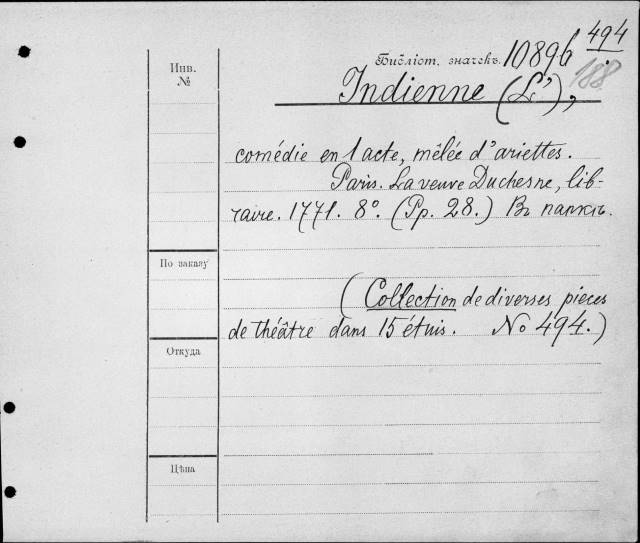 494
Библіот. значекъ. 10896
188
Инв.
№
Indienne (L'),
comédie en 1 acte, mêlée d'ariettes.
Paris. La veuve Duchesne, lib-
raire. 1771. 8º. (Pp. 28.) Въ папкѣ.
По заказу
(Collection de diverses pieces
de théâtre dans 15 étuis. No 494.)
Откуда
Цѣна